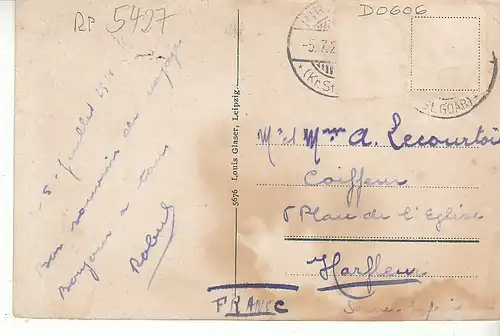 RP 5427
D0606
-5.7.2
*(Kr.St.
St. GOAR)*
5 Juillet
Bon souvenir de voyage
Bonjour a tous
5676 Louis Glaser, Leipzig.
M et Mme A. Lecourtois
Coiffeur
Place de l'Eglise
Harfleur
FRANCE